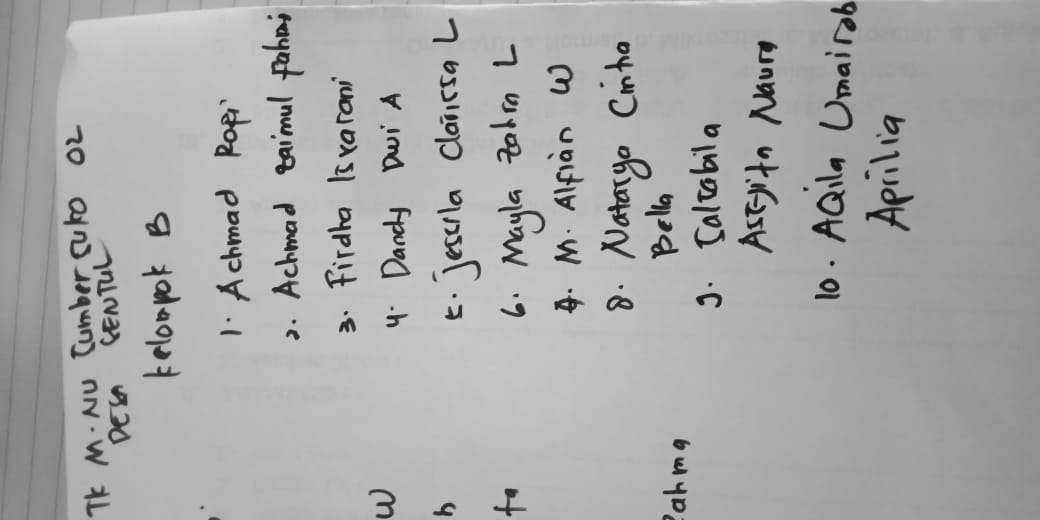 TK M. NU Sumber Suko 02
DESA SENTUL
Kelompok B
1. Achmad Ropi'
2. Achmad zaimul Fahmi
3. Firdha Isvarani
4. Dandy Dwi A
5. Jessila Clarissa L
6. Mayla Zahra L
7. M. Alfian W
8. Natasya Cinha
Bella
9. Salsabila
Assyita Naura
10. AQila Umairah
Aprilia
W
h
fa
Rahma